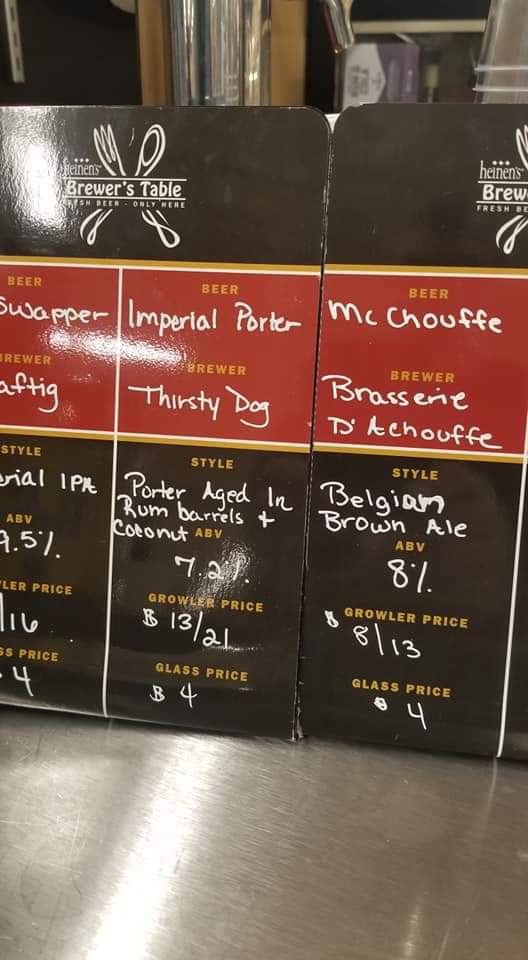 heinen's
Brewer's Table
FRESH BEER - ONLY HERE
BEER
Swapper
BREWER
aftig
STYLE
rial IPA
ABV
9.5%
LER PRICE
/16
SS PRICE
4
BEER
Imperial Porter
BREWER
Thirsty Dog
STYLE
Porter Aged In
Rum barrels +
Coconut ABV
7.2%
GROWLER PRICE
$ 13/21
GLASS PRICE
$ 4
heinen's
Brew
FRESH BE
BEER
Mc Chouffe
BREWER
Brasserie
D'Achouffe
STYLE
Belgian
Brown Ale
ABV
8%
GROWLER PRICE
$ 8/13
GLASS PRICE
$ 4